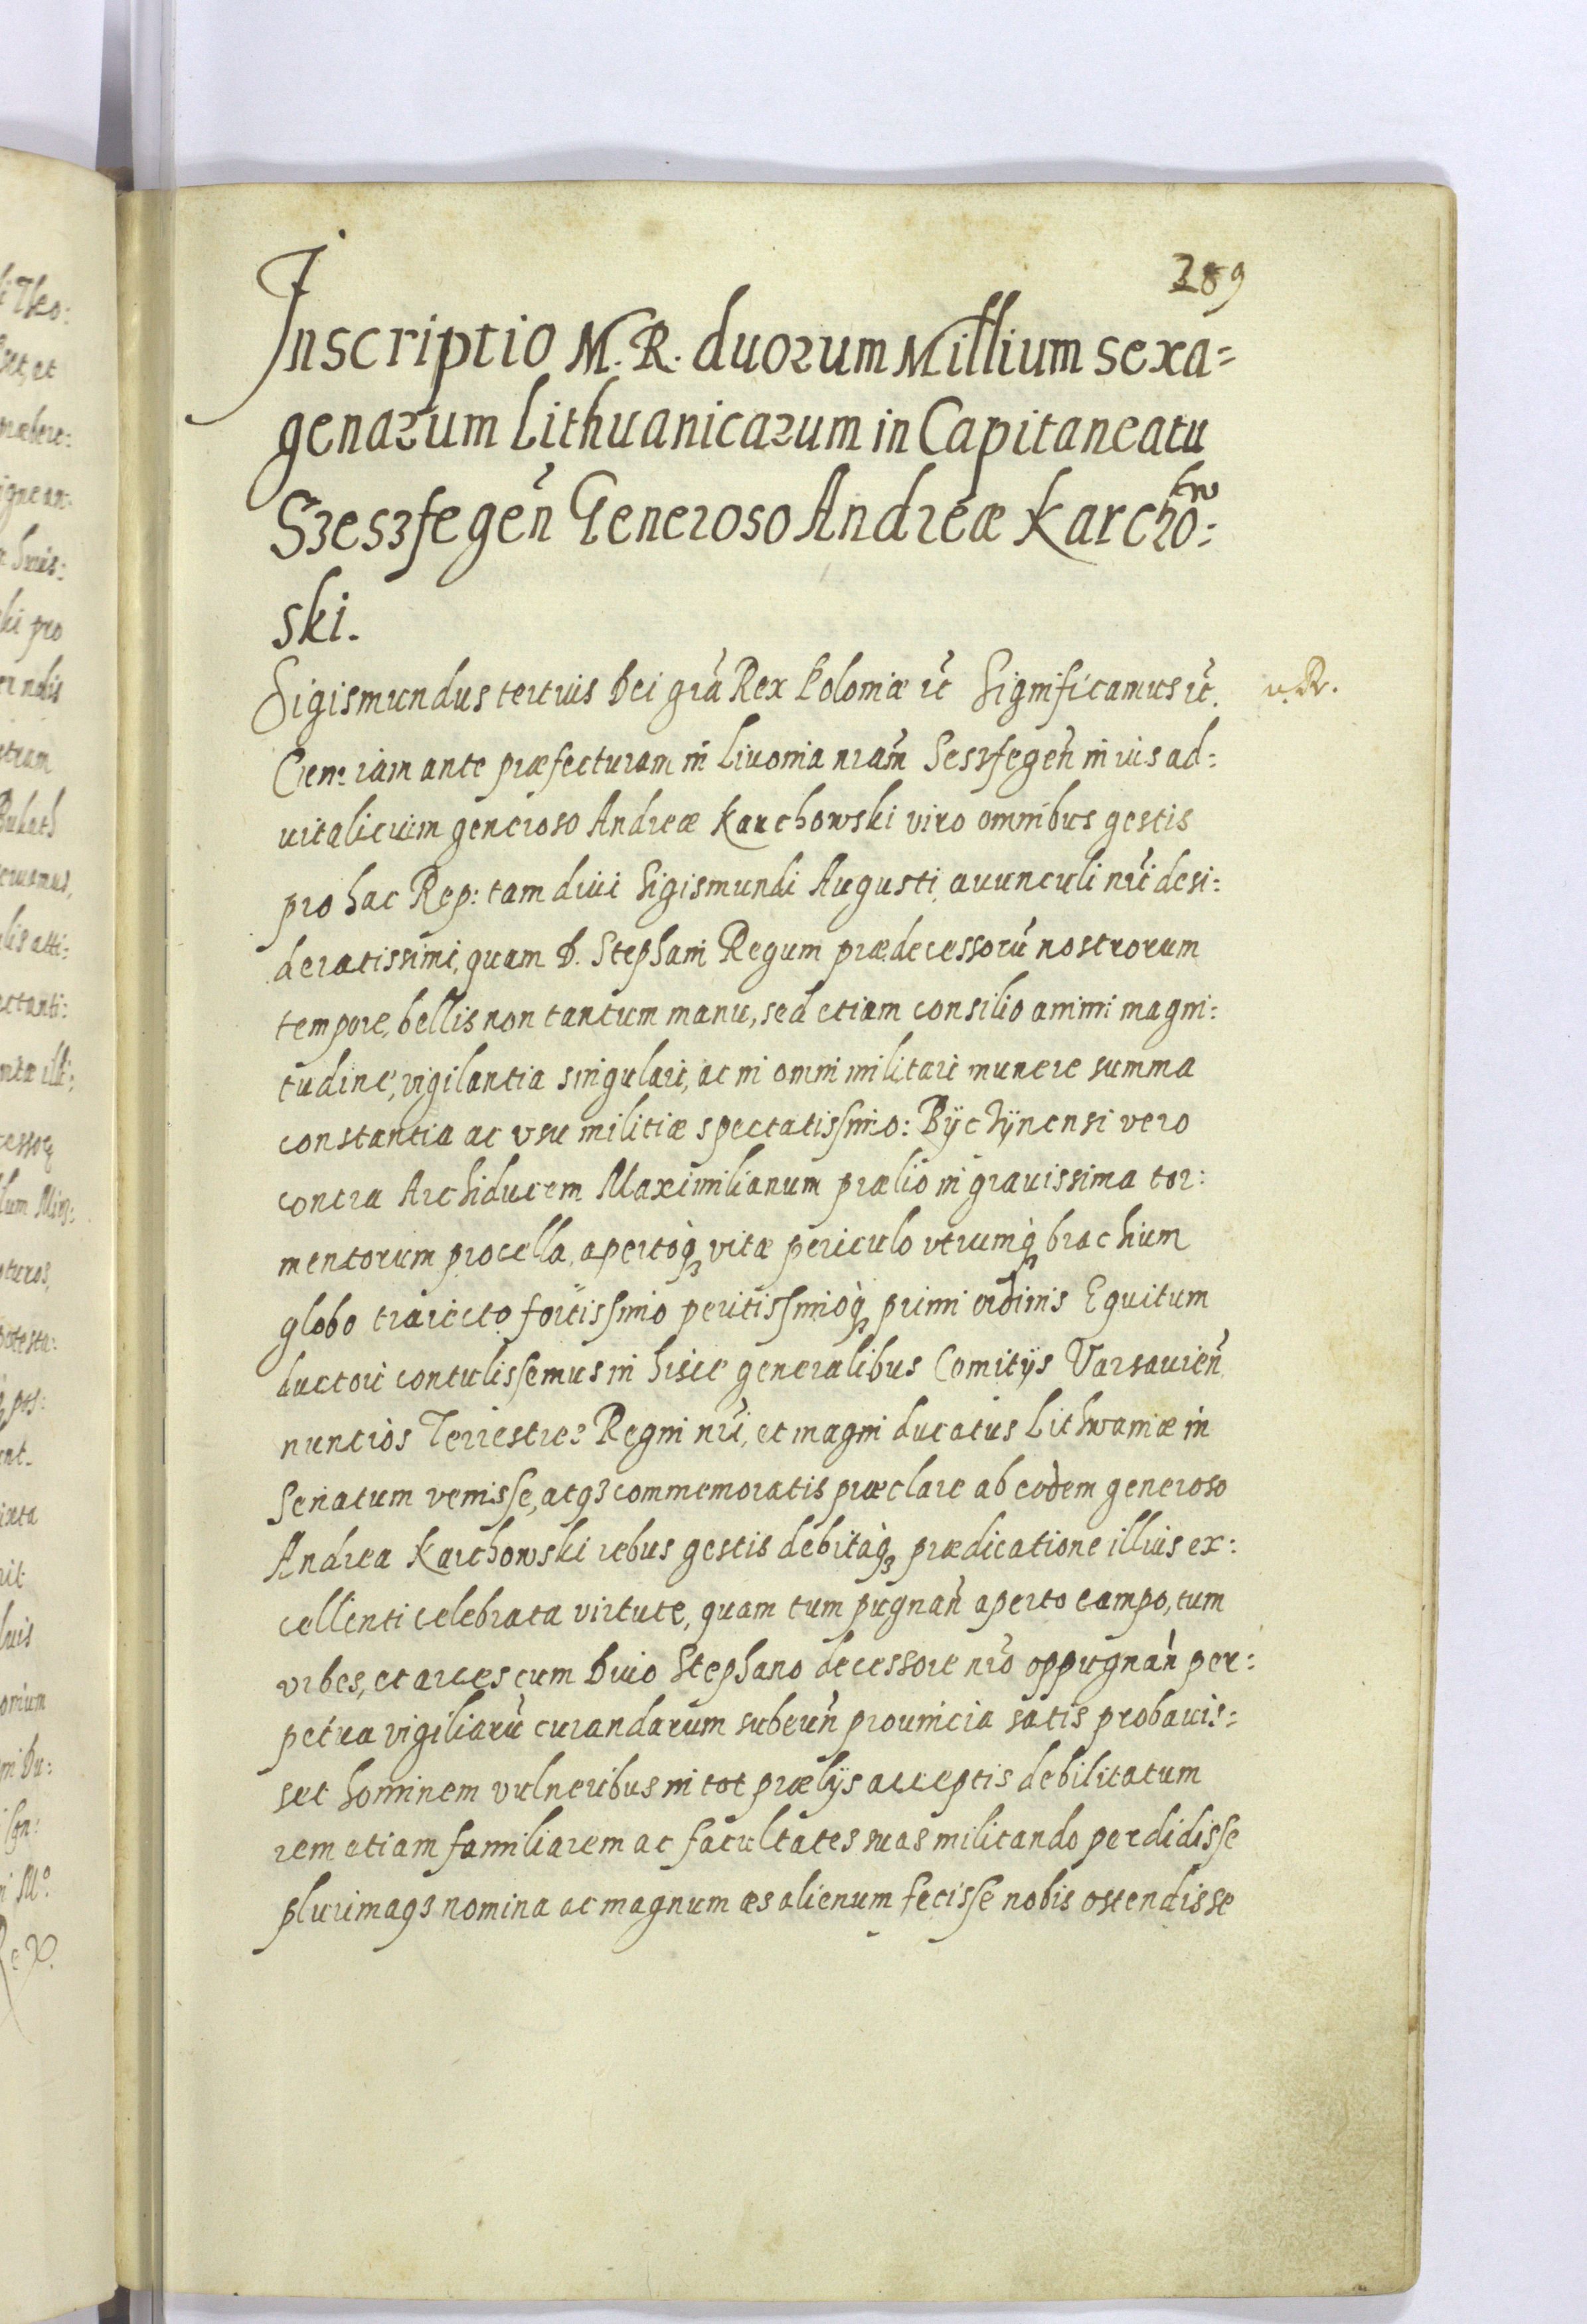 289
Inscriptio M. R. duorum Millium sexa=
genarum Lithuanicarum in Capitaneatu
Szeszfegeñ Generoso Andreæ Karcho:
ski.
Sigismundus tertius Dei gr̃a Rex Poloniæ ꝛc̃ Significamus ꝛc̃.
Cum iam ante præfecturam in Liuonia nr̃am Seszfegeñ in ius ad:
uitalicium generoso Andreæ Karchowski viro omnibus gestis
pro hac Rep: tam diui Sigismundi Augusti, auunculi nr̃i desi:
deratissimi, quam D. Stephani Regum prædecessorũ nostrorum
tempore, bellis non tantum manu, sed etiam consilio animi magni:
tudine, vigilantia singulari, ac in omni militari munere summa
constantia ac vsu militiæ spectatissimo: Bÿchÿnensi vero
contra Archiducem Maximilianum prælio in grauissima tor:
mentorum procella, apertoq̀ꝫ vitæ periculo vtrumq̀ꝫ brachium
globo traiecto fortissimo peritissimoq̀ꝫ primi ordinis Equitum
ductori contulissemus in hisce generalibus Comitÿs Varsauieñ
nuncios Terrestres Regni nr̃i, et magni ducatus Lithwaniæ in
Senatum venisse, atqꝫ commemoratis præclare ab eodem generoso
Andrea Karchowski rebus gestis debitaq̀ꝫ prædicatione illius ex:
cellenti celebrata virtute, quam tum pugnañ aperto campo, tum
vrbes, et arces cum Diuo Stephano decessore nr̃o oppugnañ per:
petua vigiliarũ curandarum subeuñ prouincia satis probauis:
set hominem vulneribus in tot prælÿs acceptis debilitatum
rem etiam familiarem ac facultates suas militando perdidisse
plurimaqꝫ nomina ac magnum æs alienum fecisse nobis ostendisse